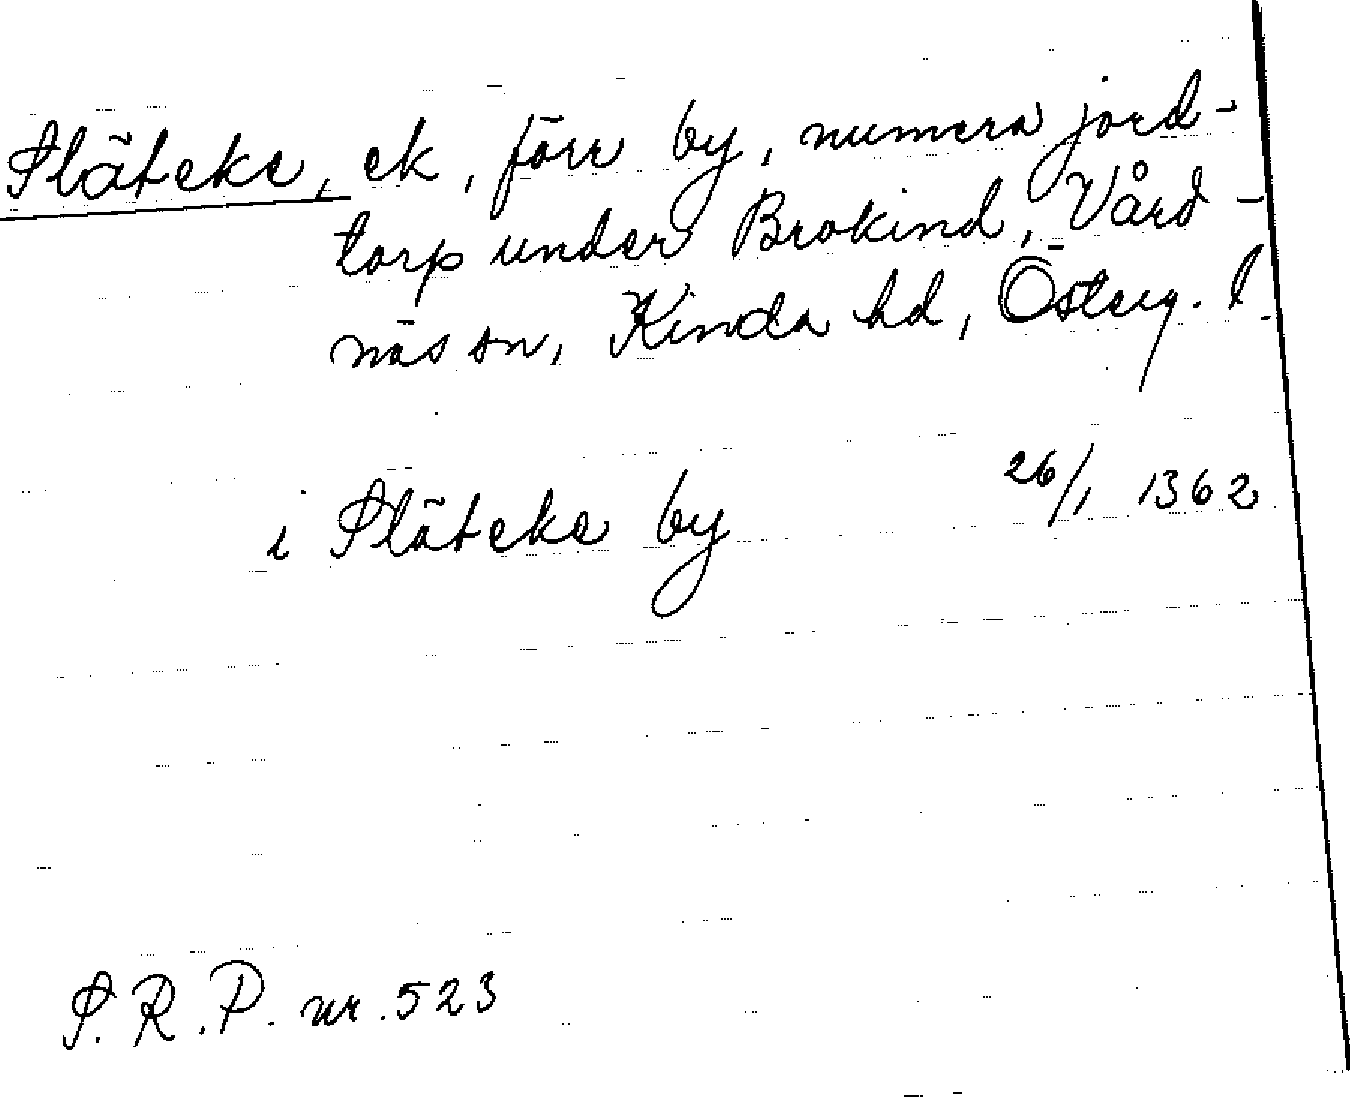 Släteke, ek, förr by, numera jord-
torp under Brokind, Vård-
näs sn, Kinda hd, Österg. l.
i Släteke by 26/1 1362
S. R. P. nr. 523